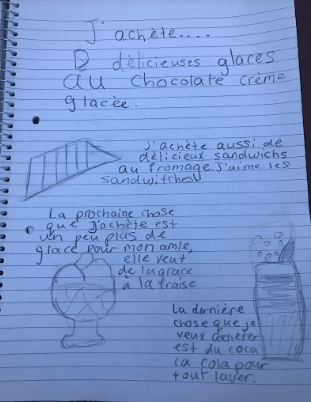 J'achète....
D délicieuses glaces
au chocolate crème
glacée.
J'achète aussi de
délicieux sandwichs
au fromage. J'aime les
sandwitches
La prochaine chose
que j'achète est
un peu plus de
glace pour mon amie,
elle veut
de la grace
à la fraise
La dernière
chose que je
veux acheter
est du coca
ca cola pour
tout laver.